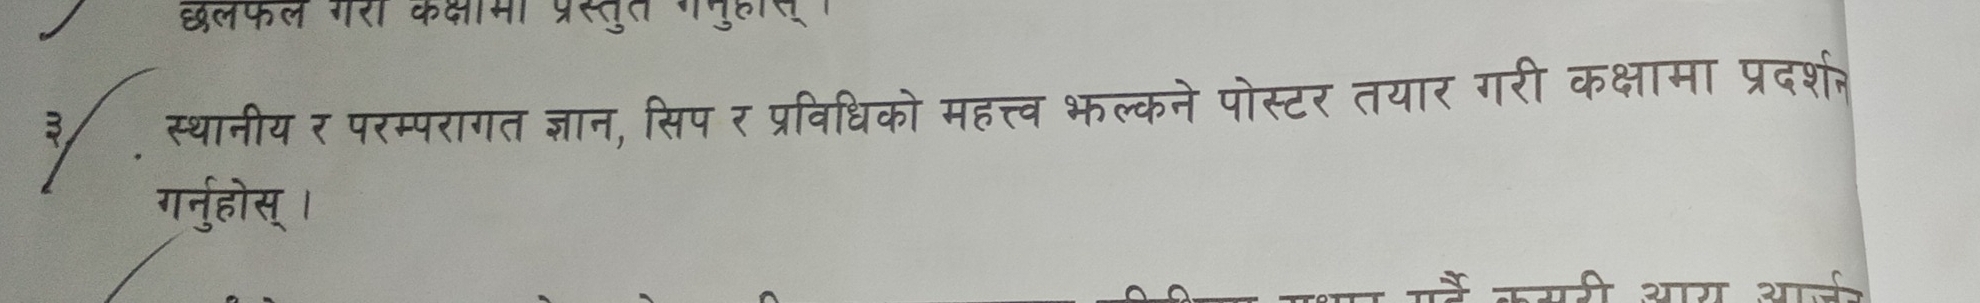 छलफल गरी कक्षामा प्रस्तुत गर्नुहोस् ।
३. स्थानीय र परम्परागत ज्ञान, सिप र प्रविधिको महत्त्व झल्कने पोस्टर तयार गरी कक्षामा प्रदर्शन
गर्नुहोस् ।
गर्दै कसरी आय आर्जन